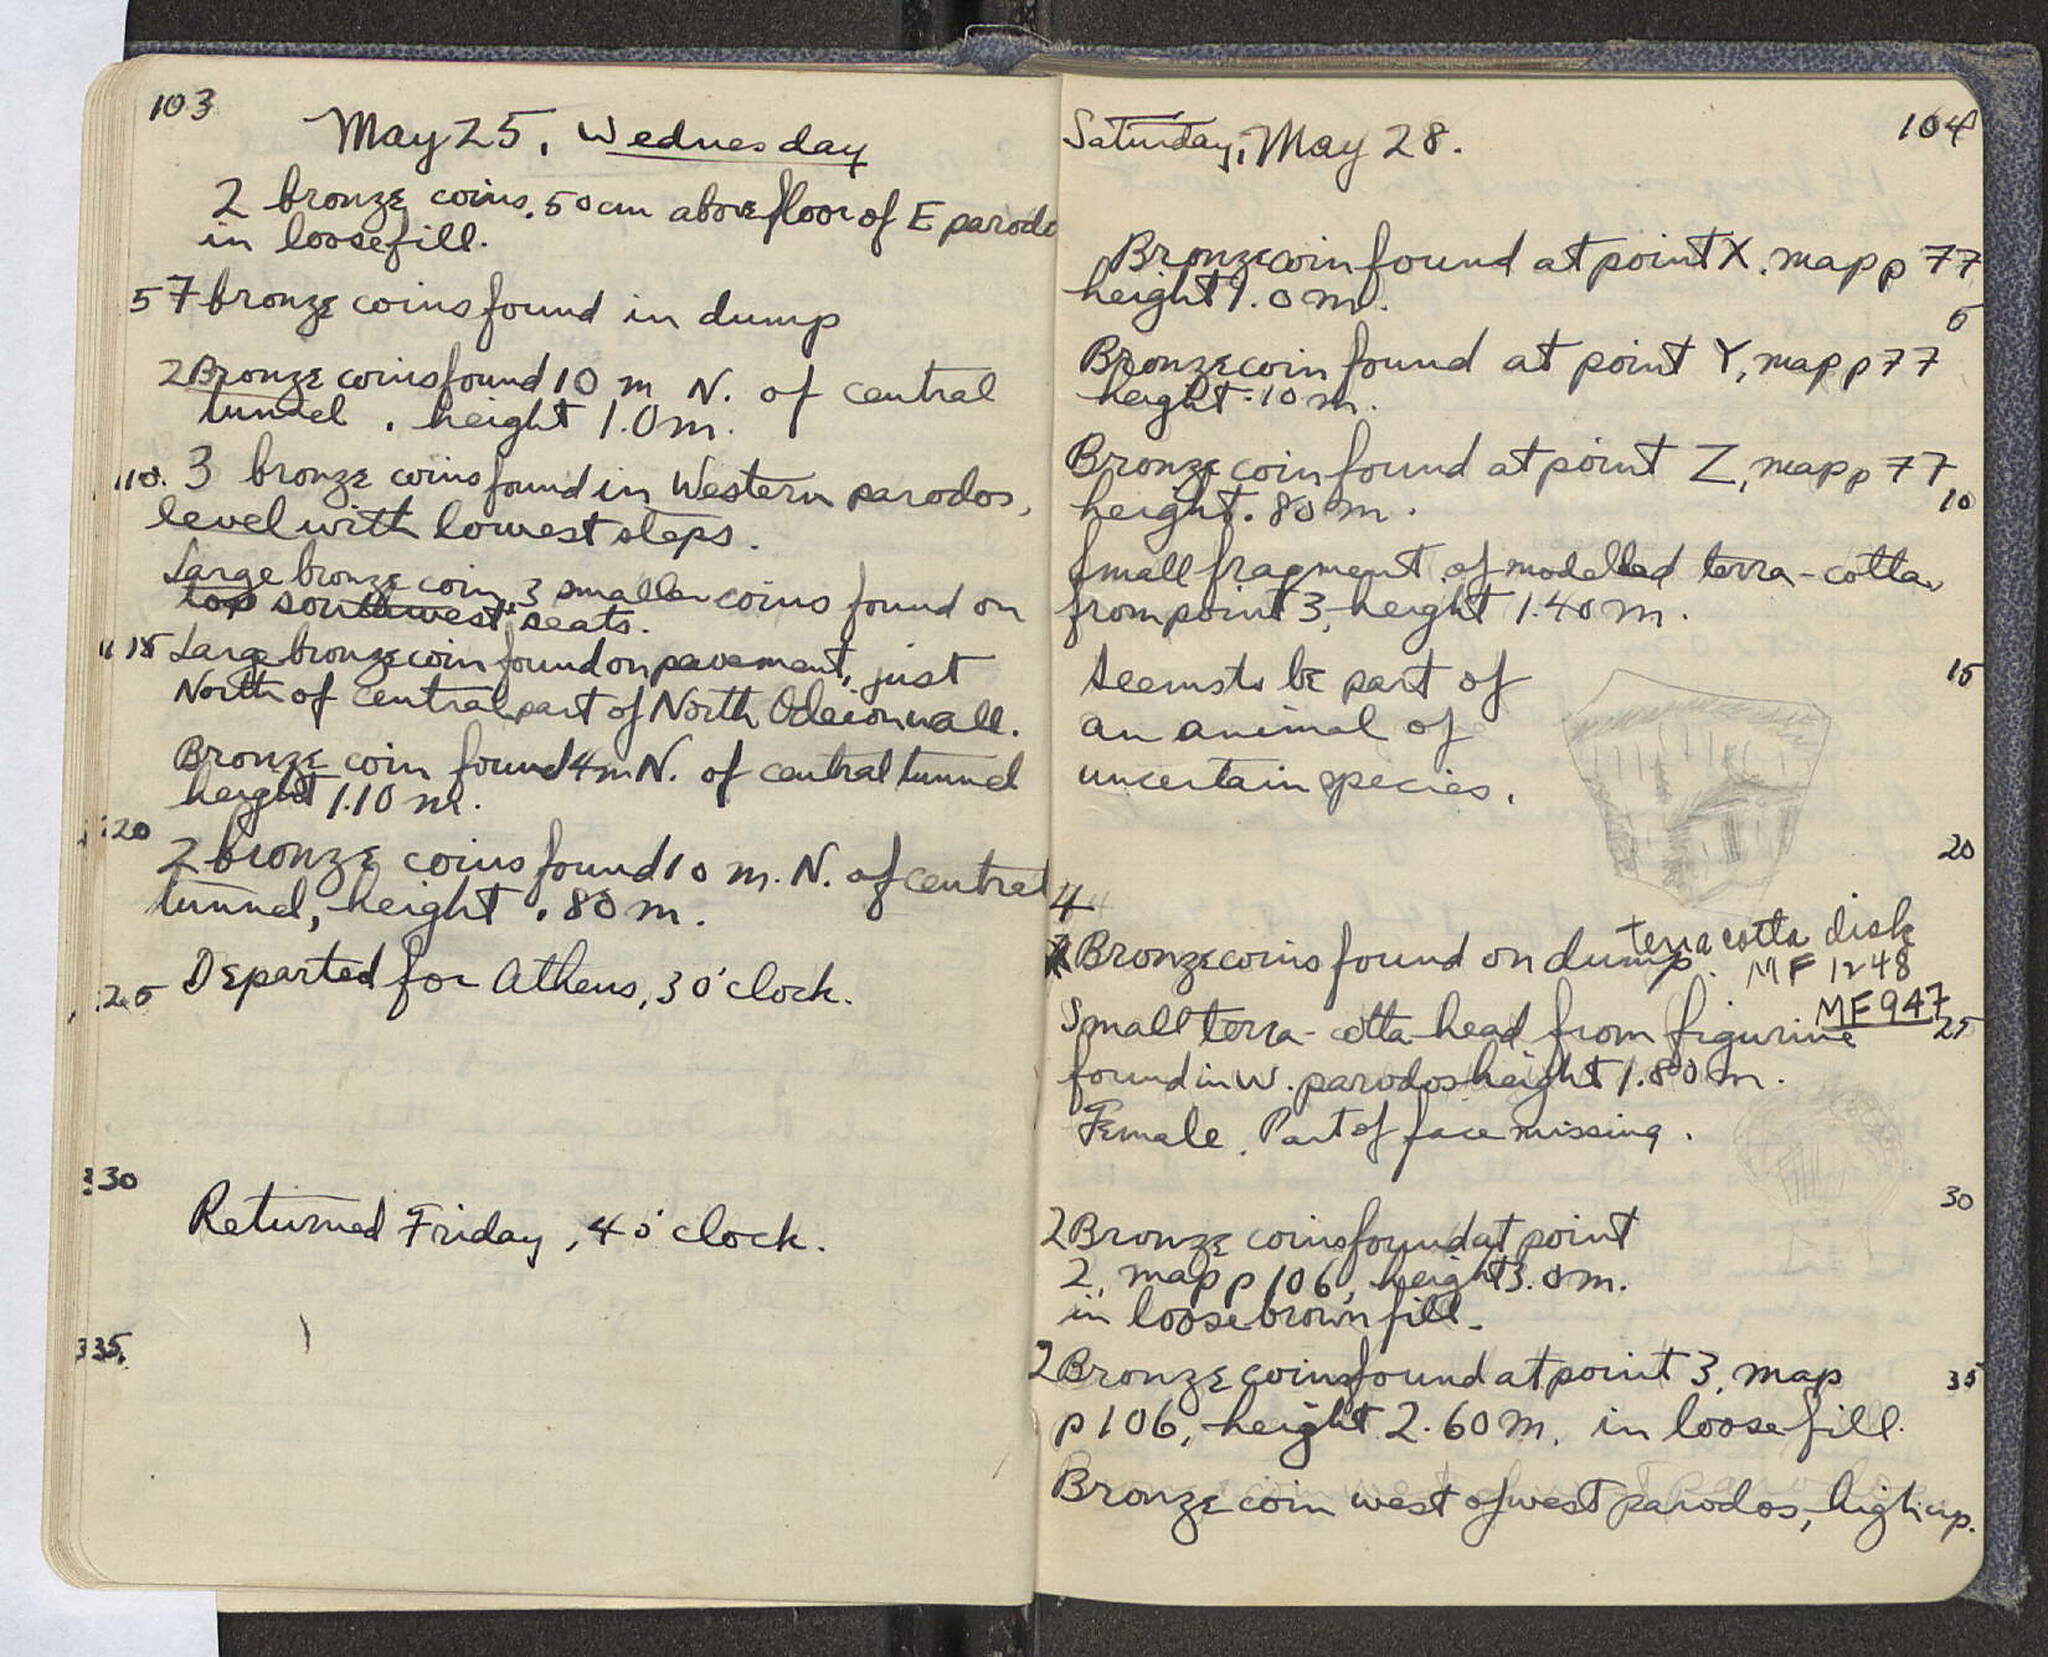 103
May 25, Wednesday
2 bronze coins .50 cm above floor of E parodo
in loose fill.
5 7 bronze coins found in dump
2 Bronze coins found 10 m N. of central
tunnel, height 1.0 m.
10. 3 bronze coins found in Western parodos,
level with lowest steps.
Large bronze coin, 3 smaller coins found on
top southwest seats.
15 Large bronze coin found on pavement, just
North of central part of North Odeion wall.
Bronze coin found 4 m N. of central tunnel
height 1.10 m.
20
2 bronze coins found 10 m. N. of central
tunnel, height .80 m.
25 Departed for Athens, 3 o'clock.
30
Returned Friday, 4 o'clock.
35
104
Saturday, May 28.
Bronze coin found at point X, map p 77
height 1.0 m.
5
Bronze coin found at point Y, map p 77
height .10 m.
Bronze coin found at point Z, map p 77,
10
height .80 m.
Small fragment of modelled terra-cotta
from point 3, height 1.40 m.
Seems to be part of 15
an animal of
uncertain species.
20
4
Bronze coins found on dump. terra cotta disk
MF 1248
MF 947
Small terra-cotta head from figurine 25
found in W. parodos height 1.80 m.
Female. Part of face missing.
30
2 Bronze coins found at point
2, map p 106, height 3.0 m.
in loose brown fill.
2 Bronze coins found at point 3, map 35
p 106, height 2.60 m. in loose fill.
Bronze coin west of west parodos, high up.